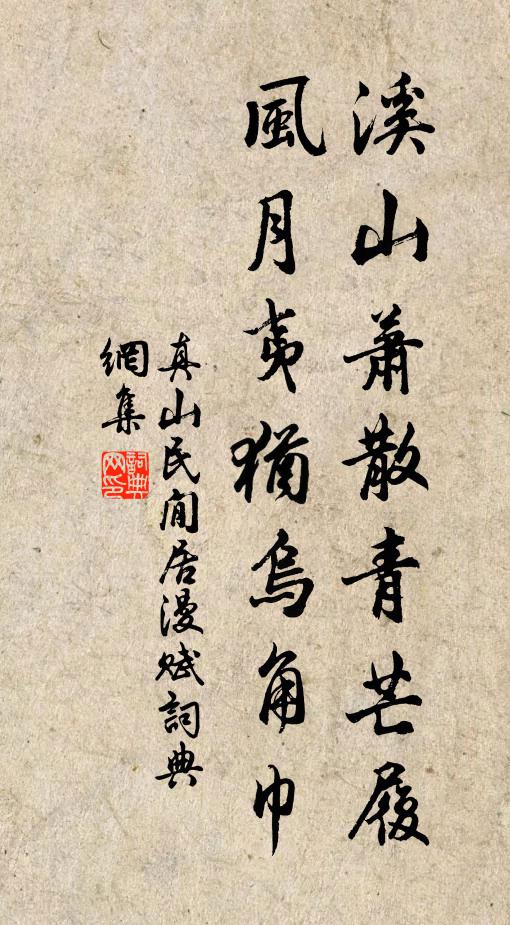 溪山蕭散青芒屨
風月夷猶烏角巾
真山民閒居漫賦詞典
網集
詞典網印